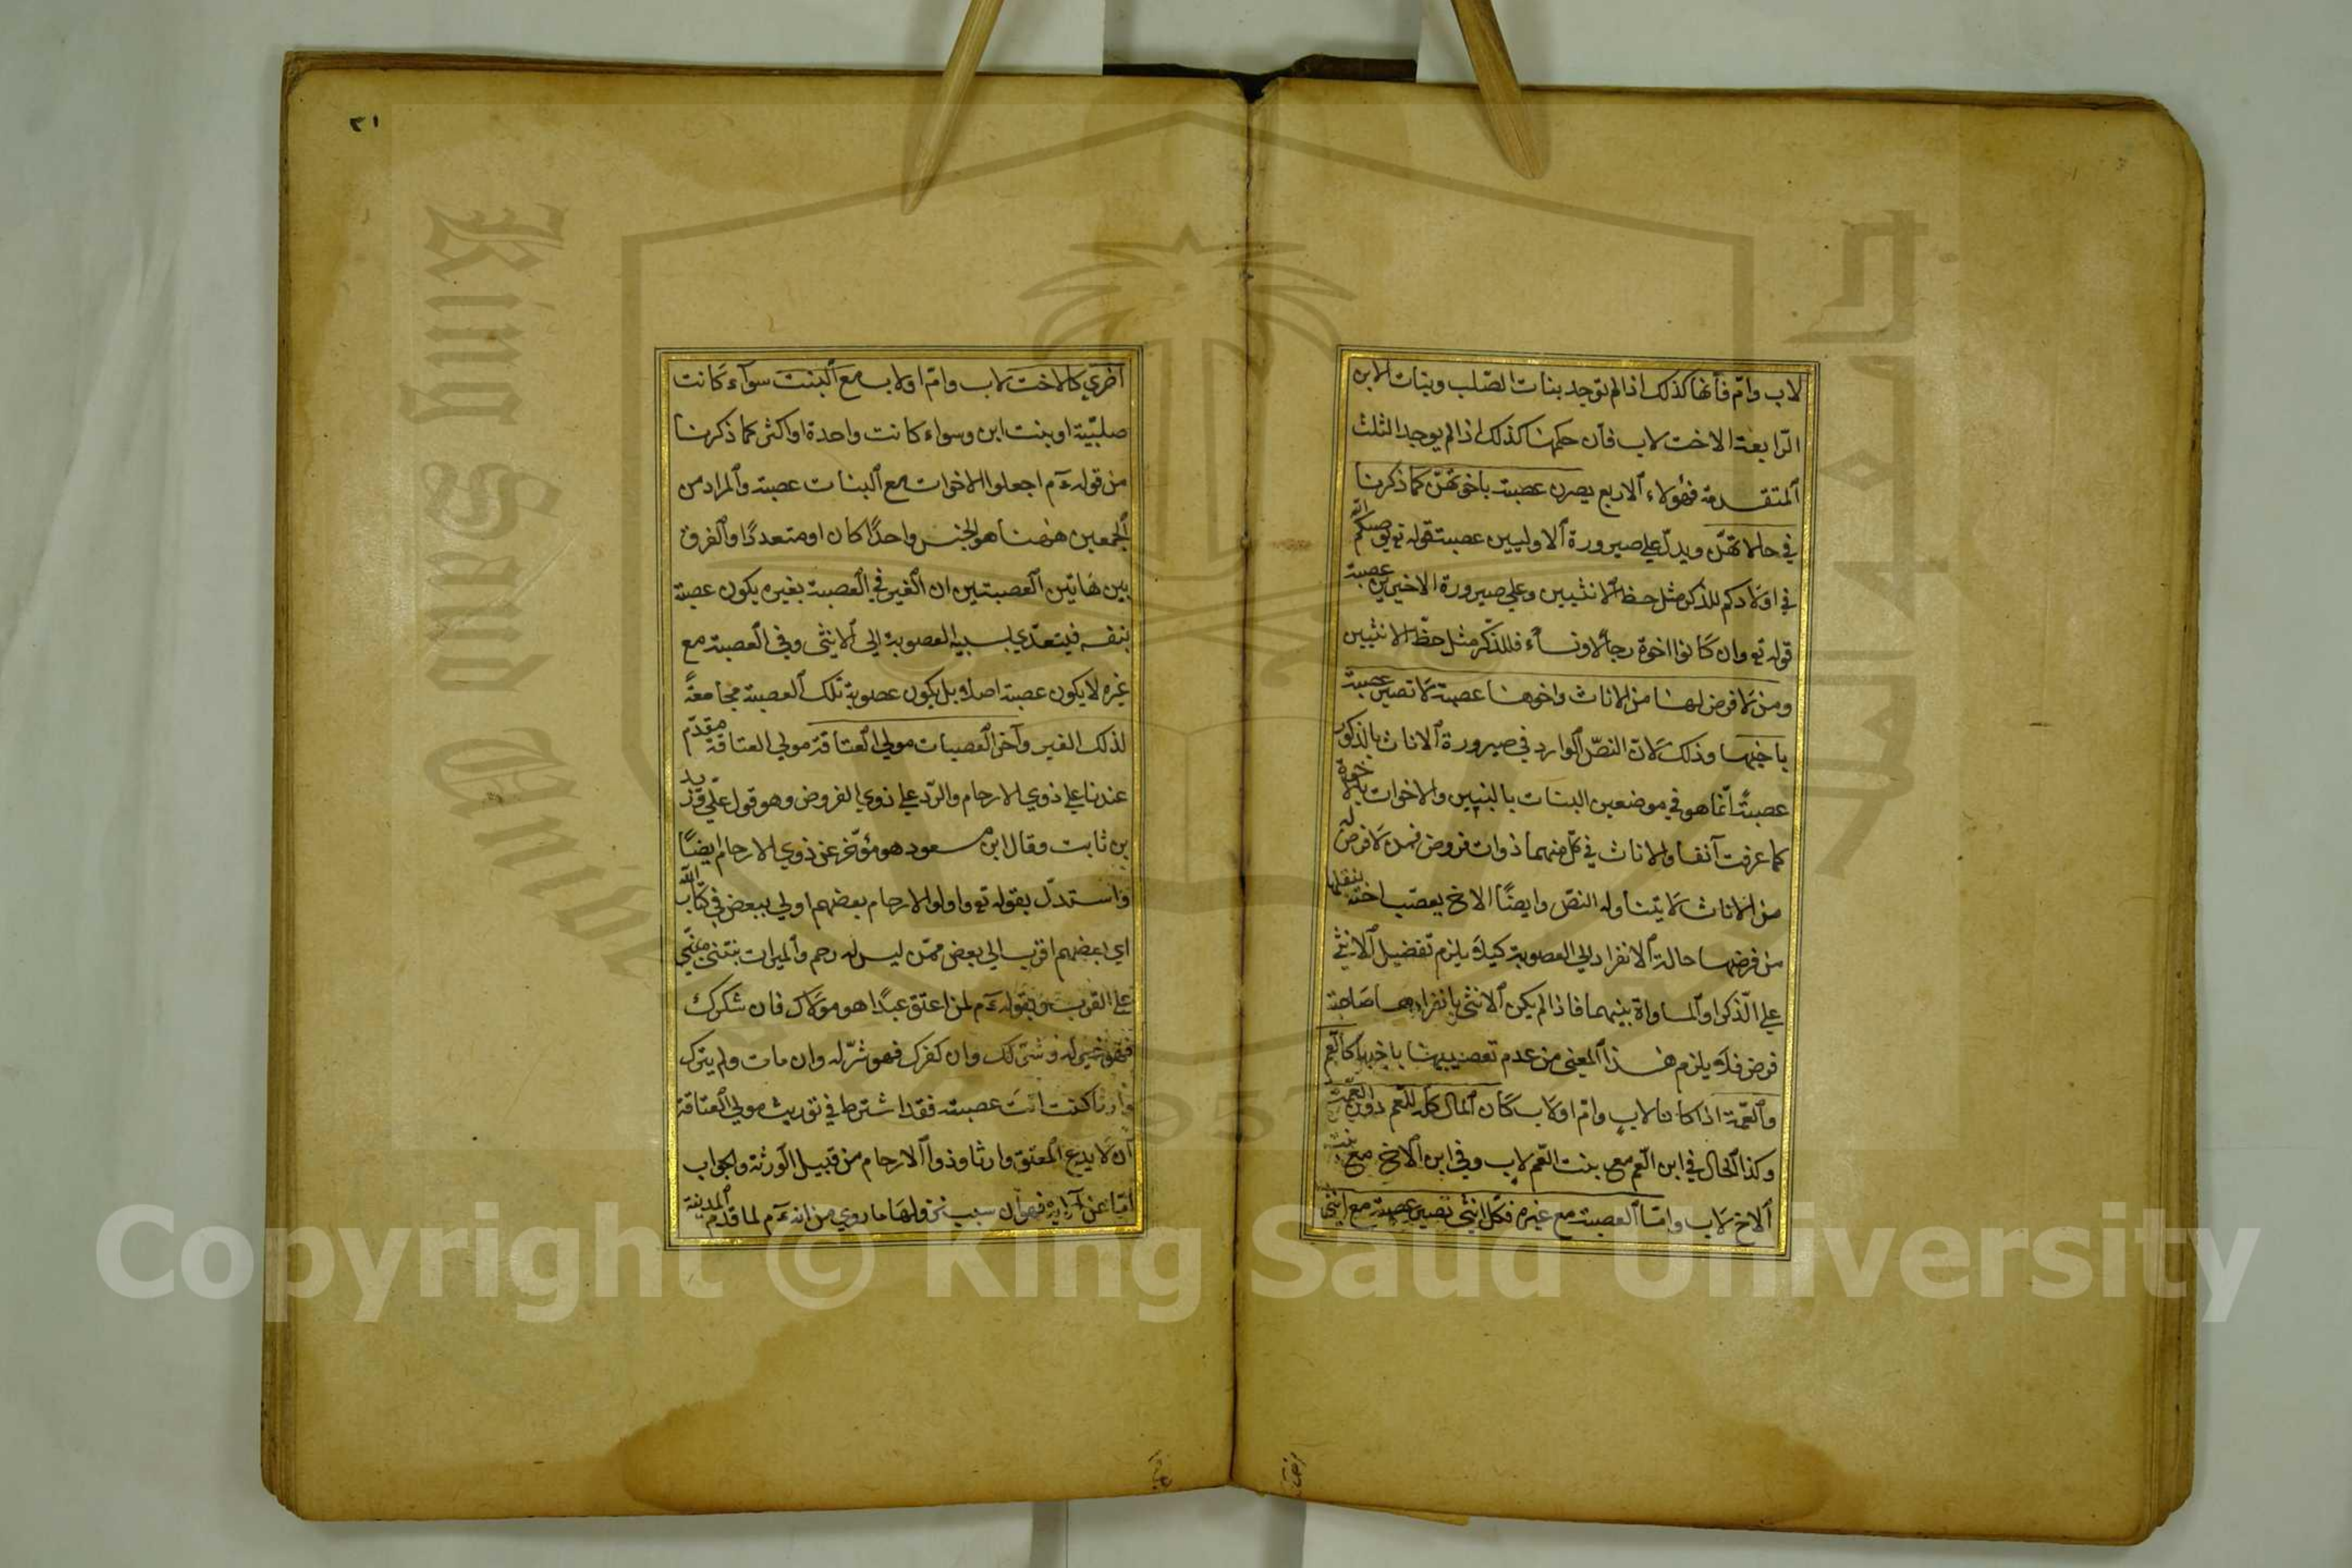 لاب وامّ فأنها كذلك اذا لم توجد بنات الصّلب وبنات الابن
الرّابعة الاخت لاب فأن حكمها كذلك اذا لم يوجد الثلث
المتقدمة فهؤلاء الاربع يصرن عصبة باخوتهنّ كما ذكرنا
في حالاتهنّ ويدلّ على صيرورة الاوليين عصبة قوله تع يوصيكم الله
في اولادكم للذكر مثل حظ الانثيين وعلى صيرورة الاخيرين عصبة
قوله تع وان كانوا اخوة رجالا ونساء فللذّكر مثل حظّ الانثيين
ومن لا فرض لها من الاناث واخوها عصبة لا تصير عصبة
باخيها وذلك لانّ النصّ الوارد في صيرورة الاناث بالذكور
عصبةً انّما هو في موضعين البنات بالبنين والاخوات بالاخوة
كما عرفت آنفا والاناث في كلّ منهما ذوات فروض فمن لا فرض له
من الاناث لا يتناوله النصّ وايضًا الاخ يعصّب اخته بنقلها
من فرضها حالة الانفراد الى العصوبة كيلا يلزم تفضيل الانثى
على الذّكر او المساواة بينهما فاذا لم يكن الانثى بانفرادها صاحبة
فرض فلا يلزم هذا المعنى من عدم تعصيبها باخيها كالعم
والعمّة اذا كانا لاب وامّ او لاب كان المال كله للعم دون العمّة
وكذا الحال في ابن العم مع بنت العّم لاب وفي ابن الاخ مع بنت
الاخ لاب وامّا العصبة مع غيره فكل انثى تصير عصبة مع انثى
٣١
اخرى كالاخت لاب وامّ او لاب مع البنت سواء كانت
صلبيّة او بنت ابن وسواء كانت واحدة او اكثر كما ذكرنا
من قوله ءم اجعلوا الاخوات مع البنات عصبة والمراد من
الجمعين ههنا هو الجنس واحدًا كان او متعددًا والفرق
بين هاتين العصبتين ان الغير في العصبة بغيره يكون عصبة
بنفسه فيتعدّى بسببه العصوبة الى الانثى وفي العصبة مع
غيره لا يكون عصبة اصلا بل يكون عصوبة تلك العصبة مجامعةً
لذلك الغير وآخر العصبات مولى العتاقة مولى العتاقة مقدّم
عندنا على ذوي الارحام والرّد على ذوي الفروض وهو قول علي وزيد
بن ثابت وقال ابن مسعود هو مؤخّر عن ذوي الارحام ايضًا
واستدلّ بقوله تع واولوا الارحام بعضهم اولى ببعض في كتاب الله
اي بعضهم اقرب الى بعض ممّن ليس له رحم والميراث يبتنى
على القرب وبقوله ءم لمن اعتق عبدًا هو مولاك فان شكرك
فهو خير له وشرّ لك وان كفرك فهو شرّ له وان مات ولم يترك
وارثا كنت انت عصبته فقد اشترط في توريث مولى العتاقة
ان لا يدع المعتق وارثا وذوا الارحام من قبيل الورثة والجواب
امّا عن الآية فهو ان سبب نزولها ما روي من انه ءم لما قدم المدينة
Copyright © King Saud University
King Saud